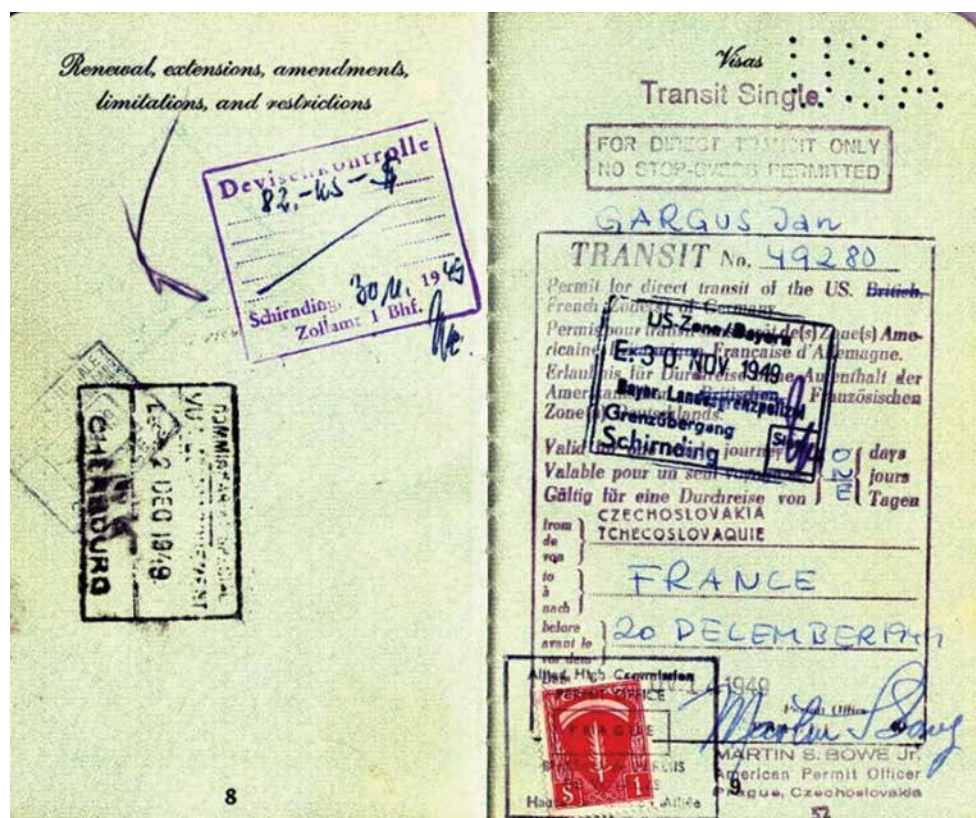 Renewal, extensions, amendments,
limitations, and restrictions
Devisenkontrolle
82.-
$
30 11. 1949
Schirnding,
Zollamt I Bhf.
2 DEC 1949
CHERBOURG
8
Visas
USA
Transit Single.
FOR DIRECT TRANSIT ONLY
NO STOP-OVERS PERMITTED
GARGUS Jan
TRANSIT No. 49280
Permit for direct transit of the US. British.
French Zone(s) of Germany
Permis pour transit de(s) Zone(s) Amé-
ricaine Française d'Allemagne.
Erlaubnis für Durchreise ohne Aufenthalt der
Britischen Französischen
Zone(n) Deutschlands.
US-Zone/Bayern
E. 30. NOV. 1949
Bayer. Landesgrenzpolizei
Grenzübergang
Schirnding
Valid for journey ONE days
Valable pour un seul jours
Gültig für eine Durchreise von Tagen
from CZECHOSLOVAKIA
de TCHECOSLOVAQUIE
von
to
à FRANCE
nach
before
avant le 20 DECEMBER 1949
vor dem
1949
Allied High Commission
PERMIT OFFICE
PRAGUE
$ 1
Permit Officer
MARTIN S. BOWE Jr.
American Permit Officer
Prague, Czechoslovakia
9
52